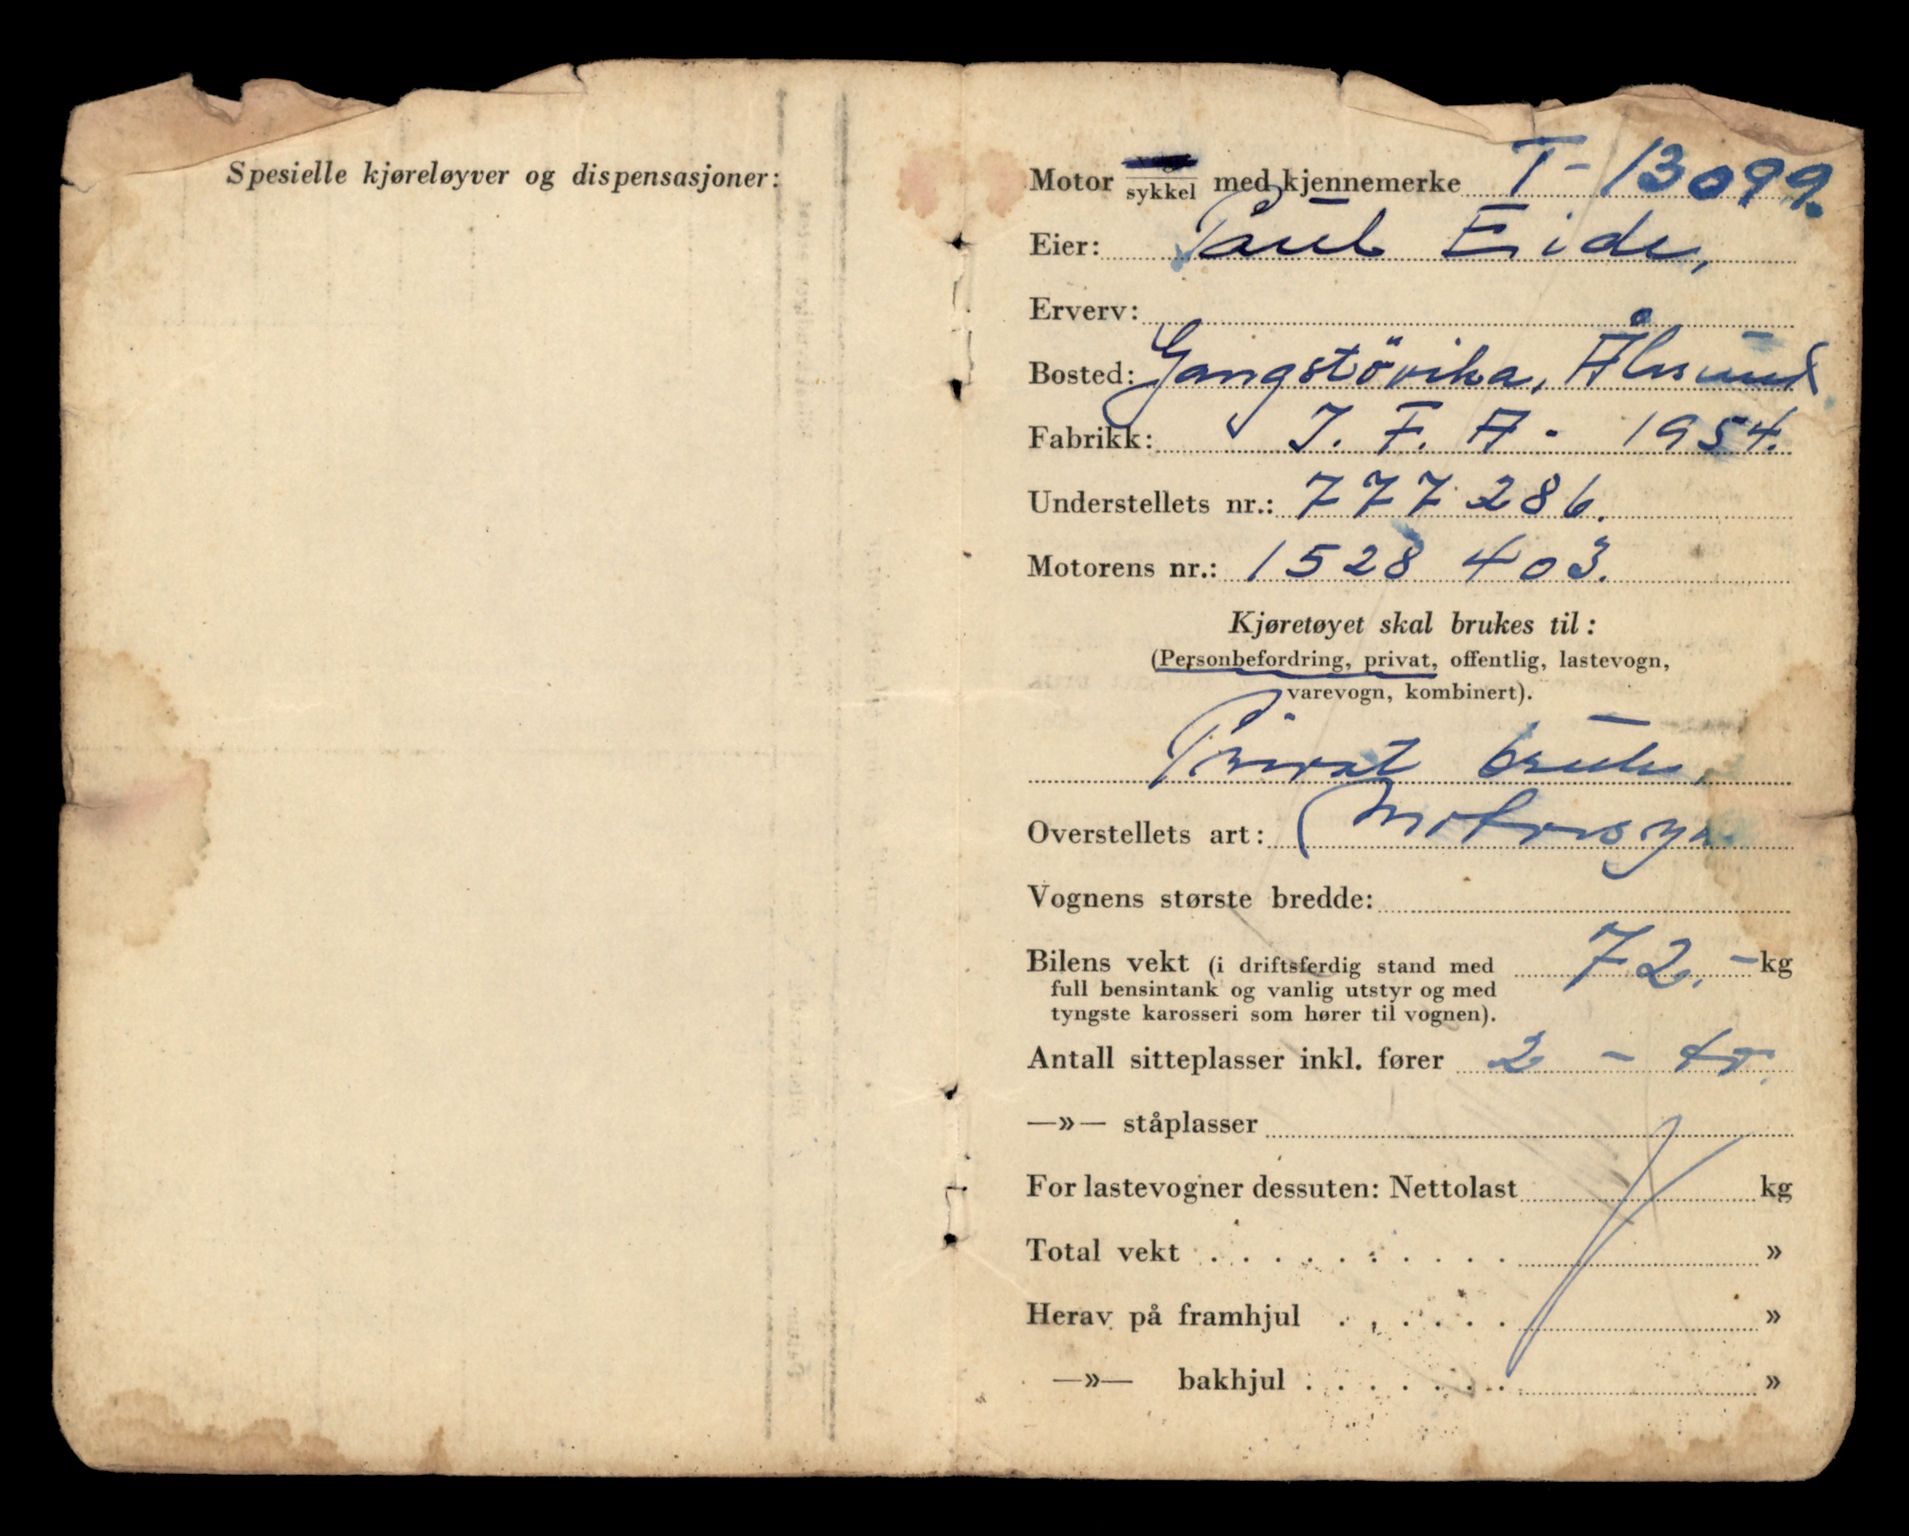 Spesielle kjøreløyver og dispensasjoner:
Motor sykkel med kjennemerke T-13099.
Eier: Paul Eide,
Erverv:
Bosted: Gangstövika, Ålesund
Fabrikk: I. F. A - 1954.
Understellets nr.: 777 286.
Motorens nr.: 1528 403.
Kjøretøyet skal brukes til:
(Personbefordring, privat, offentlig, lastevogn,
varevogn, kombinert).
Privat bruk,
Overstellets art:
Vognens største bredde:
Bilens vekt (i driftsferdig stand med 72.- kg
full bensintank og vanlig utstyr og med
tyngste karosseri som hører til vognen).
Antall sitteplasser inkl. fører 2 - to.
—»— ståplasser
For lastevogner dessuten: Nettolast kg
Total vekt . . . . . . . . . . »
Herav på framhjul . , . . . . »
—»— bakhjul . . . . . . . »